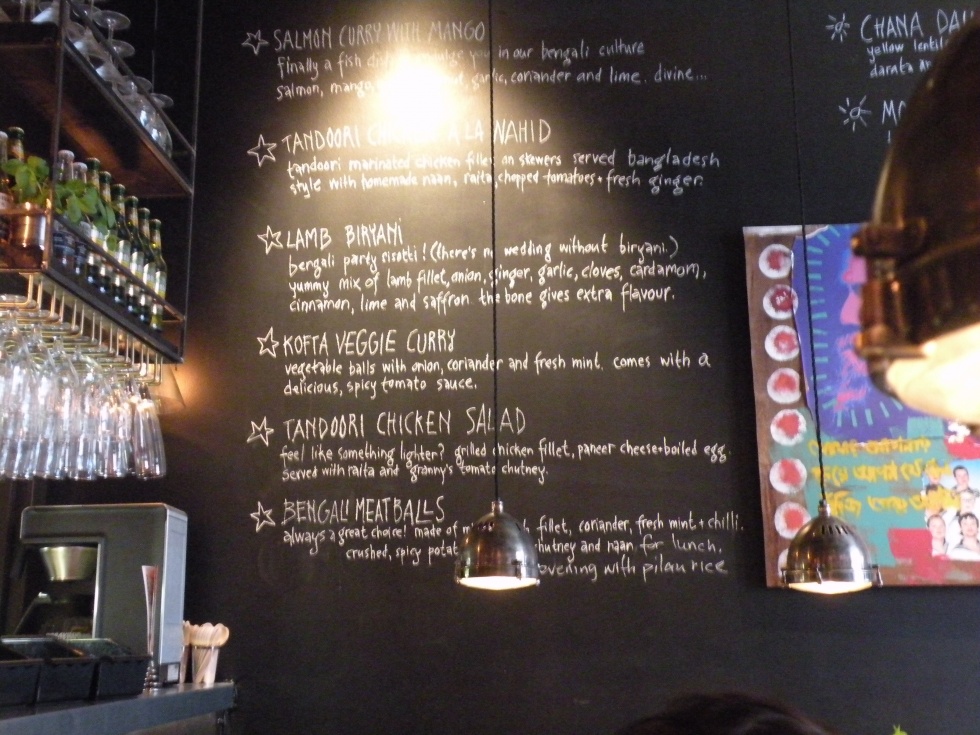 SALMON CURRY WITH MANGO
finally a fish you in our bengali culture
salmon, mango, garlic, coriander and lime. divine...
TANDOORI A LA NAHID
tandoori marinated chicken fillet on skewers served bangladesh
style with homemade naan, raita chopped tomatoes + fresh ginger.
LAMB BIRYANI
bengali party risotti! (there's no wedding without biryani.)
yummy mix of lamb fillet, onion, ginger, garlic, cloves, cardamom,
cinnamon, lime and saffron the bone gives extra flavour.
KOFTA VEGGIE CURRY
vegetable balls with onion, coriander and fresh mint. comes with a
delicious, spicy tomato sauce.
TANDOORI CHICKEN SALAD
feel like something lighter? grilled chicken fillet, paneer cheese + boiled egg.
served with raita and granny's tomato chutney.
BENGALI MEATBALLS
always a great choice! made of fillet, coriander, fresh mint + chilli.
crushed, spicy chutney and naan for lunch.
evening with pilau rice
CHANA
yellow